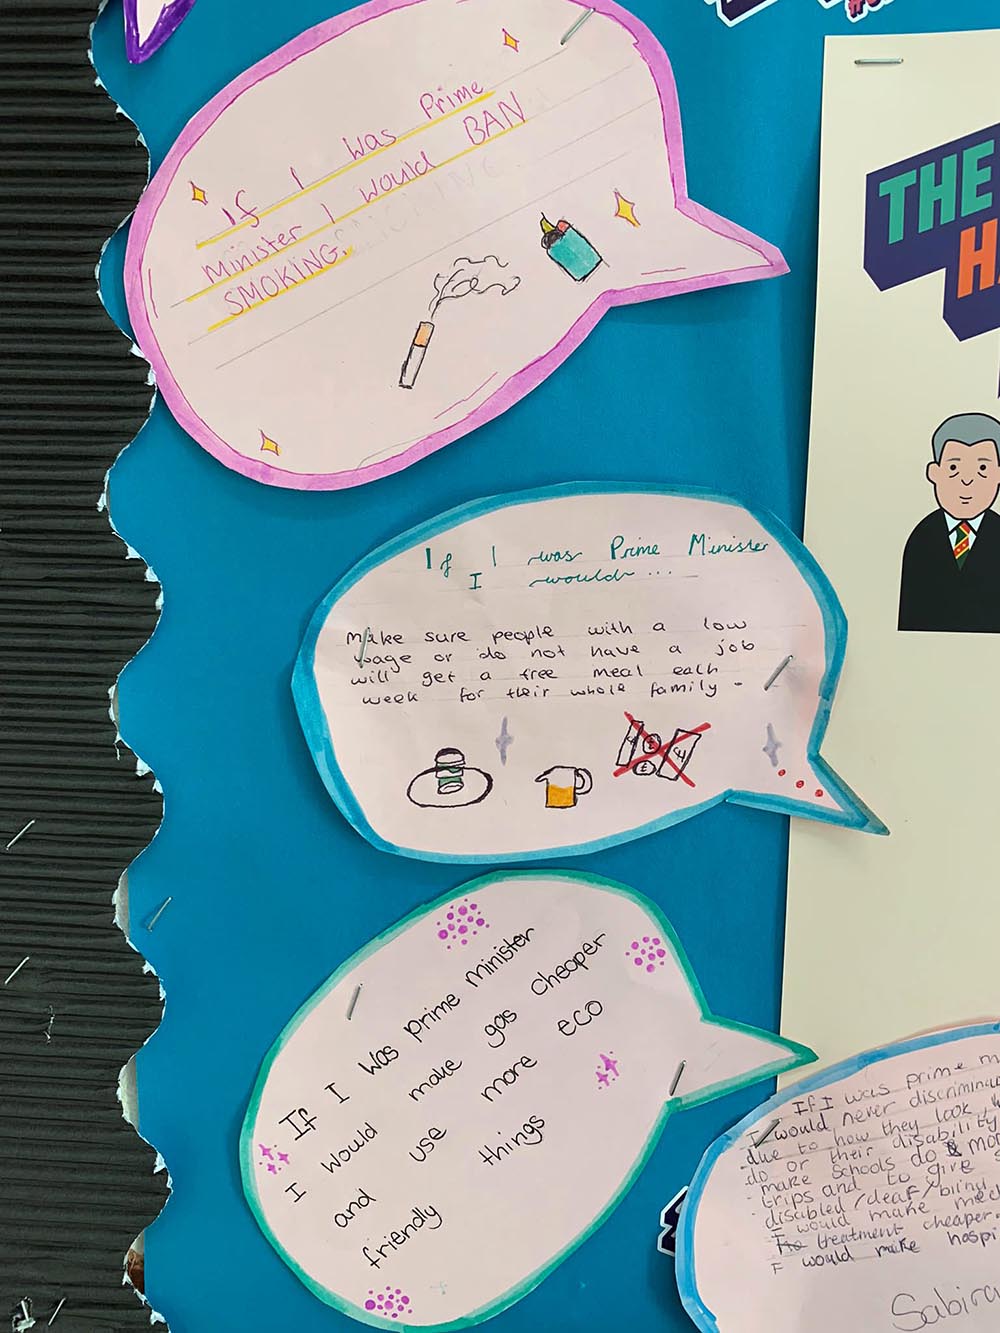 If I was Prime
Minister I would BAN
SMOKING.
THE
If I was Prime Minister
I would...
Make sure people with a low
wage or do not have a job
will get a free meal each
week for their whole family.
£
£
£
If I was prime minister
I would make gas cheaper
and use more eco
friendly things
If I was prime
I would never
due to how they look
do or their disability
make schools do
trips and to give
disabled/deaf/blind
I would make
treatment cheaper.
I would make